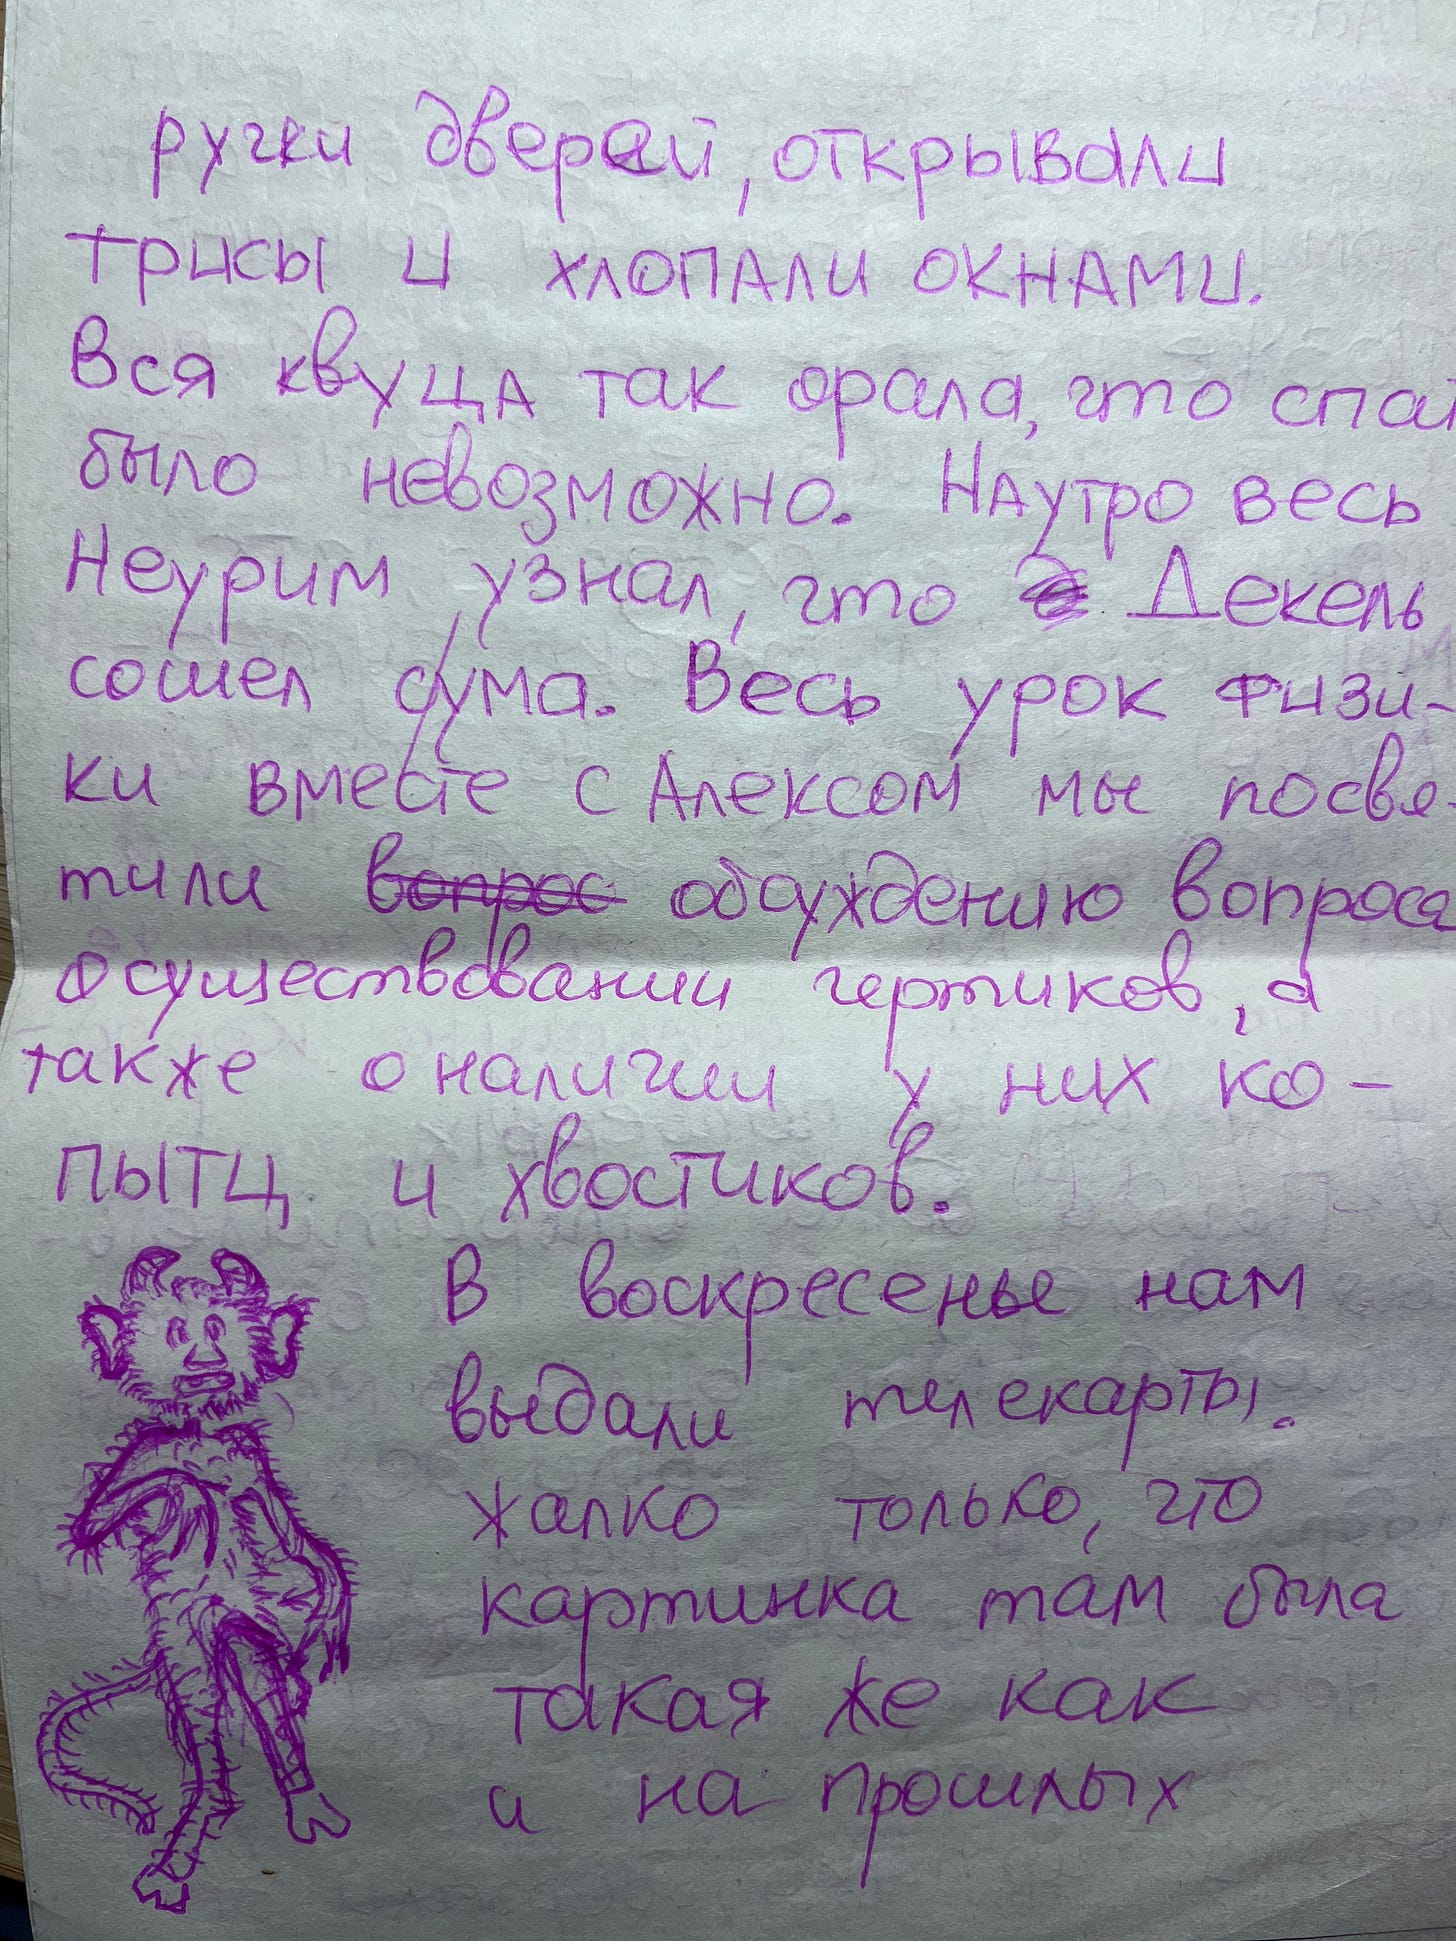 ручки дверей, открывали
трисы и хлопали окнами.
Вся квуца так орала, что спат
было невозможно. Наутро весь
Неурим узнал, что Декель
сошел сума. Весь урок физи-
ки вместе с Алексом мы посвя-
тили вопрос обсуждению вопроса
осуществовании чертиков, а
также о наличии у них ко-
пытц и хвостиков.
В воскресенье нам
выдали телекарты.
Жалко только, что
картинка там была
такая же как
и на прошлых